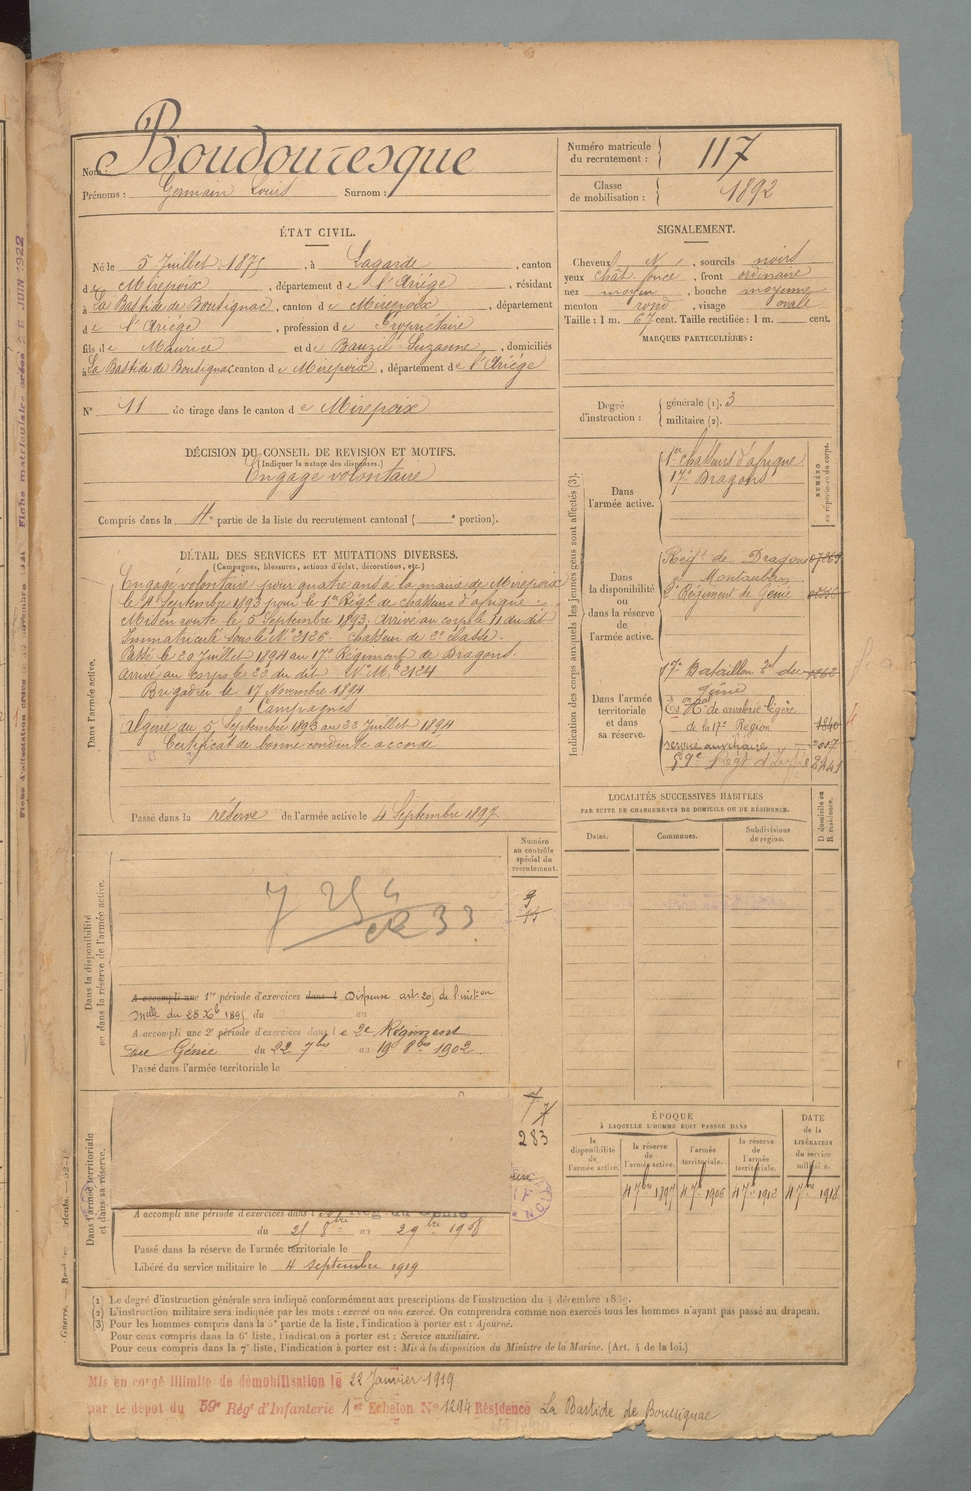 Nom : Boudouresque
Prénoms : Germain Louis Surnom :
Numéro matricule du recrutement : 117
Classe de mobilisation : 1892
ÉTAT CIVIL.
Né le 5 Juillet 1875, à Lagarde, canton
de Mirepoix, département de l'Ariège, résidant
à La Bastide de Bousignac, canton de Mirepoix, département
de l'Ariège, profession de Propriétaire
fils de Maurice et de Bauzil Suzanne, domiciliés
à La Bastide de Bousignac canton de Mirepoix, département de l'Ariège
N° 11 de tirage dans le canton de Mirepoix
DÉCISION DU CONSEIL DE REVISION ET MOTIFS.
(Indiquer la nature des dispenses.)
Engagé volontaire
Compris dans la 4e partie de la liste du recrutement cantonal ( e portion).
SIGNALEMENT.
Cheveux N, sourcils noirs
yeux chât. foncé, front ordinaire
nez moyen, bouche moyenne
menton rond, visage ovale
Taille : 1 m. 67 cent. Taille rectifiée : 1 m. cent.
MARQUES PARTICULIÈRES :
Degré d'instruction : générale (1). 3
militaire (2).
DÉTAIL DES SERVICES ET MUTATIONS DIVERSES.
(Campagnes, blessures, actions d'éclat, décorations, etc.)
Dans l'armée active.
Engagé volontaire pour quatre ans à la mairie de Mirepoix
le 4 Septembre 1893 pour le 1er Régt de chasseurs d'afrique.
Mis en route le 5 Septembre 1893, arrivé au corps le 11 du dit
Immatriculé sous le N° 3126 chasseur de 2e classe.
Passé le 20 Juillet 1894 au 17e Régiment de Dragons.
Arrivé au Corps le 23 du dit N° Mle 2124
Brigadier le 17 Novembre 1894
Campagnes
Algérie du 5 Septembre 1893 au 23 Juillet 1894
Certificat de bonne conduite accordé
Passé dans la réserve de l'armée active le 4 Septembre 1897.
Indication des corps auxquels les jeunes gens sont affectés (3).
NUMÉRO au répertoire du corps.
Dans l'armée active.
1er chasseurs d'afrique
17e Dragons
Dans la disponibilité ou dans la réserve de l'armée active.
Régt de Dragons
Montauban
2e Régiment de Génie
Dans l'armée territoriale et dans sa réserve.
17e Bataillon Tal du
Génie
de cavalerie légère
de la 17e Région 1840
service auxiliaire 2017
59e Regt d'Infie
LOCALITÉS SUCCESSIVES HABITÉES
PAR SUITE DE CHANGEMENTS DE DOMICILE OU DE RÉSIDENCE.
Dates. Communes. Subdivisions de région. D domicile ou R résidence.
Numéro au contrôle spécial du recrutement.
9
Dans la disponibilité ou dans la réserve de l'armée active.
A accompli une 1re période d'exercices dans l Dispense art. 205 de l'inston
melle du 28 Xbre 1895 du au
A accompli une 2e période d'exercices dans le 2e Régiment
du Génie du 22 7bre au 19 8bre 1902.
Passé dans l'armée territoriale le
7
283
Dans l'armée territoriale et dans sa réserve.
A accompli une période d'exercices dans l
du 21 8bre au 29 bre 1908
Passé dans la réserve de l'armée territoriale le
Libéré du service militaire le 4 septembre 1919
ÉPOQUE
À LAQUELLE L'HOMME DOIT PASSER DANS
DATE de la LIBÉRATION du service militaire.
la disponibilité de l'armée active. la réserve de l'armée active. l'armée territoriale. la réserve de l'armée territoriale.
4 7bre 1897 4 7bre 1906 4 7bre 1912 4 7bre 1918
(1) Le degré d'instruction générale sera indiqué conformément aux prescriptions de l'instruction du 4 décembre 1889.
(2) L'instruction militaire sera indiquée par les mots : exercé ou non exercé. On comprendra comme non exercés tous les hommes n'ayant pas passé au drapeau.
(3) Pour les hommes compris dans la 5e partie de la liste, l'indication à porter est : Ajourné.
Pour ceux compris dans la 6e liste, l'indication à porter est : Service auxiliaire.
Pour ceux compris dans la 7e liste, l'indication à porter est : Mis à la disposition du Ministre de la Marine. (Art. 4 de la loi.)
Mis en congé illimité de démobilisation le 22 Janvier 1919
par le dépôt du 59e Régt d'Infanterie 1er Echelon N° 1294 Résidence La Bastide de Boussignac